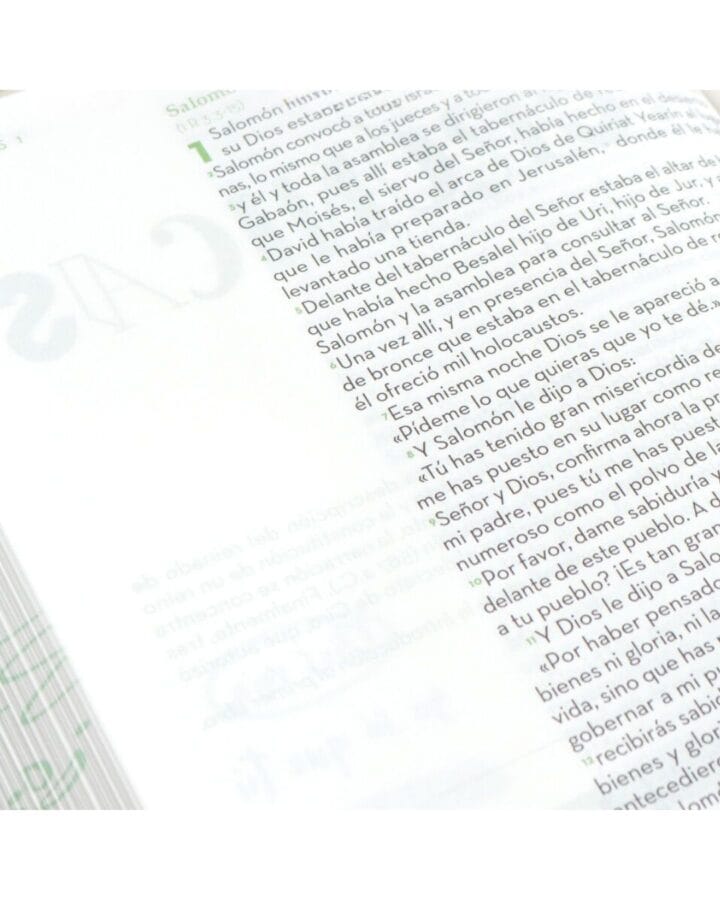 S 1
Salom
(1 R 3.3-15)
1 Salomón
su Dios estaba
2 Salomón convocó a
nas, lo mismo que a los jueces y a
3 y él y toda la asamblea se dirigieron al
Gabaón, pues allí estaba el tabernáculo de
que Moisés, el siervo del Señor, había hecho en el
4 David había traído el arca de Dios de Quiriat Yearín al
que le había preparado en Jerusalén, donde él le
levantado una tienda.
5 Delante del tabernáculo del Señor estaba el altar de
que había hecho Besalel hijo de Uri, hijo de Jur, y
Salomón y la asamblea para consultar al Señor.
6 Una vez allí, y en presencia del Señor, Salomón
de bronce que estaba en el tabernáculo de
él ofreció mil holocaustos.
7 Esa misma noche Dios se le apareció a
«Pídeme lo que quieras que yo te dé.»
8 Y Salomón le dijo a Dios:
«Tú has tenido gran misericordia de
me has puesto en su lugar como re
9 Señor y Dios, confirma ahora la pr
mi padre, pues tú me has puest
numeroso como el polvo de la
10 Por favor, dame sabiduría y
delante de este pueblo. A d
a tu pueblo? ¡Es tan gran
11 Y Dios le dijo a Salo
«Por haber pensado
bienes ni gloria, ni la
vida, sino que has
gobernar a mi p
12 recibirás sabi
bienes y glori
antecediere
lom